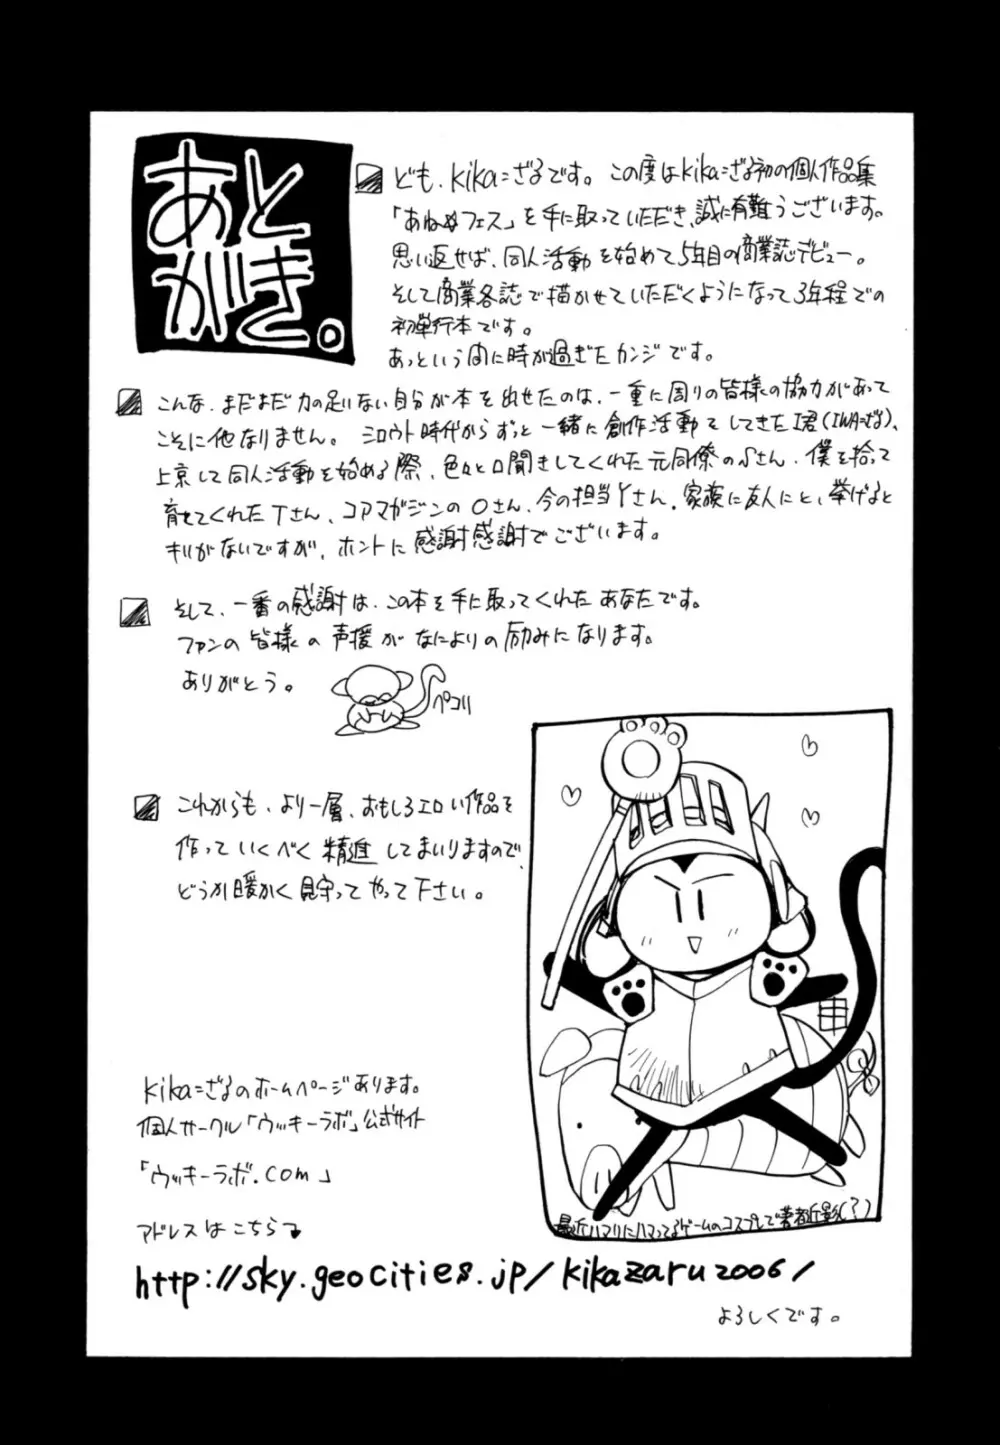 あと
がき。
ども、kika=ざるです。この度はkika=ざる初の個人作品集
「あねちゅフェス」を手に取っていただき、誠に有難うございます。
思い返せば、同人活動を始めて5年目の商業誌デビュー。
そして商業各誌で描かせていただくようになって3年程での
初単行本です。
あっという間に時が過ぎたカンジです。
こんな、まだまだ力の足りない自分が本を出せたのは、一重に周りの皆様の協力があって
ことに他なりません。シロウト時代からずっと一緒に創作活動をしてきたI君(IWAざる)、
上京して同人活動を始める際、色々と口聞きしてくれた元同僚のSさん、僕を拾って
育ててくれたTさん、コアマガジンのOさん、今の担当Yさん、家族に友人にと、挙げると
キリがないですが、ホントに感謝感謝でございます。
そして、一番の感謝は、この本を手に取ってくれたあなたです。
ファンの皆様の声援がなによりの励みになります。
ありがとう。
ペコリ
これからも、より一層、おもしろエロい作品を
作っていくべく精進してまいりますので、
どうか暖かく見守ってやって下さい。
申
最近ハマりにハマってるゲームのコスプレで著者近影(?)
kika=ざるのホームページあります。
個人サークル「ウッキーラボ」公式サイト
「ウッキーラボ.com」
アドレスはこちら
http://sky.geocities.jp/kikazaru2006/
よろしくです。